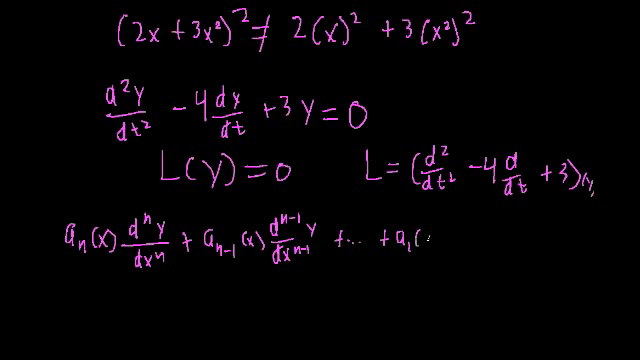 (2x + 3x²)² ≠ 2(x)² + 3(x²)²
d²y/dt² - 4 dy/dt + 3y = 0
L(y) = 0 L = (d²/dt² - 4 d/dt + 3)(y)
aₙ(x) dⁿy/dxⁿ + aₙ₋₁(x) dⁿ⁻¹y/dxⁿ⁻¹ + ... + a₁(